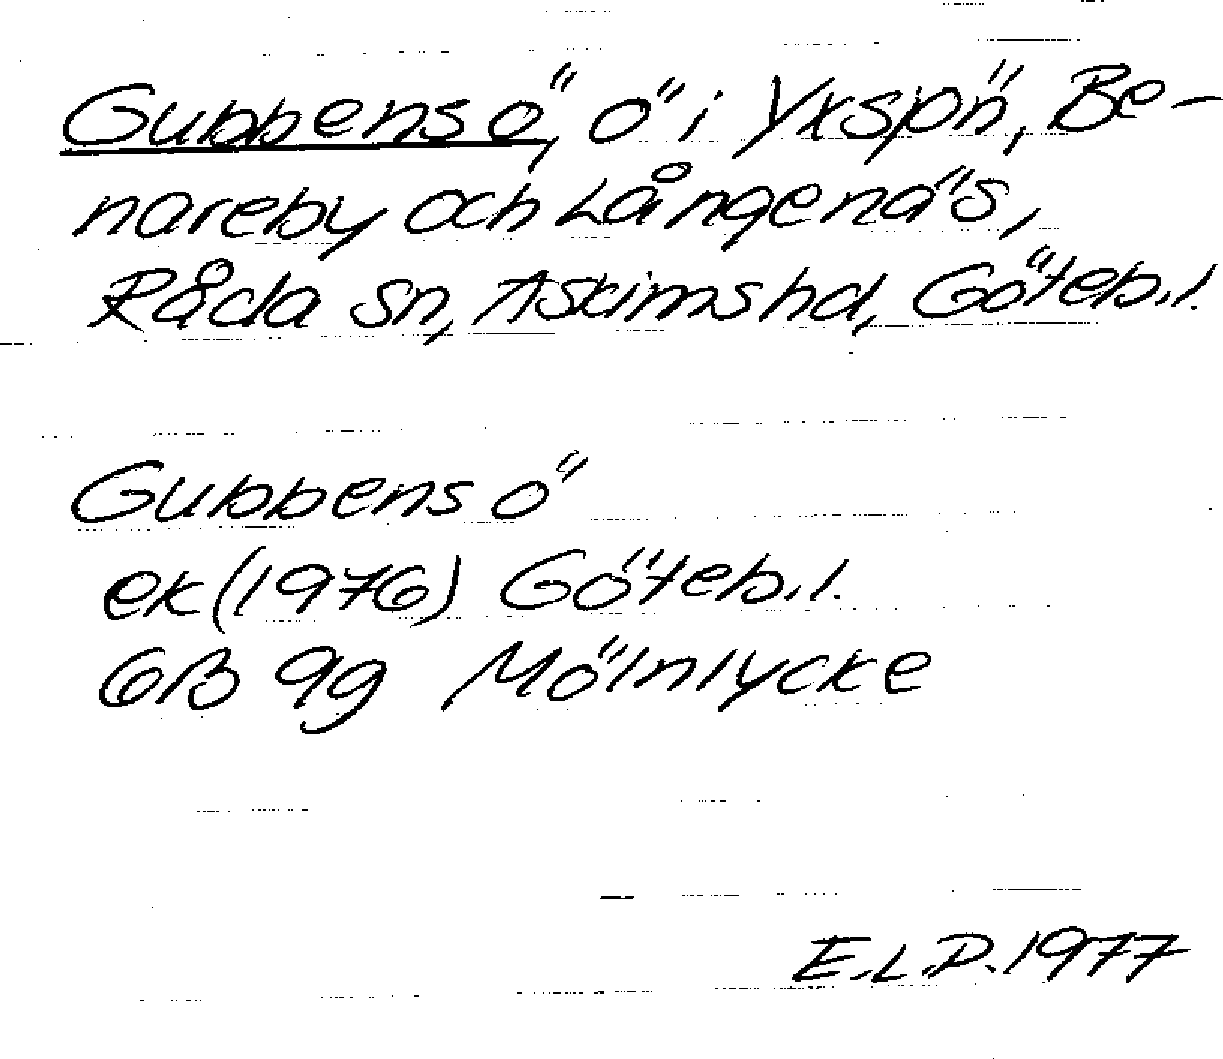 Gubbens ö, ö i Yxspn, Be-
nareby och Långenäs,
Råda sn, Askims hd, Göteb.l.
Gubbens ö
ek (1976) Göteb.l.
6B 9g Mölnlycke
E.L.P. 1977